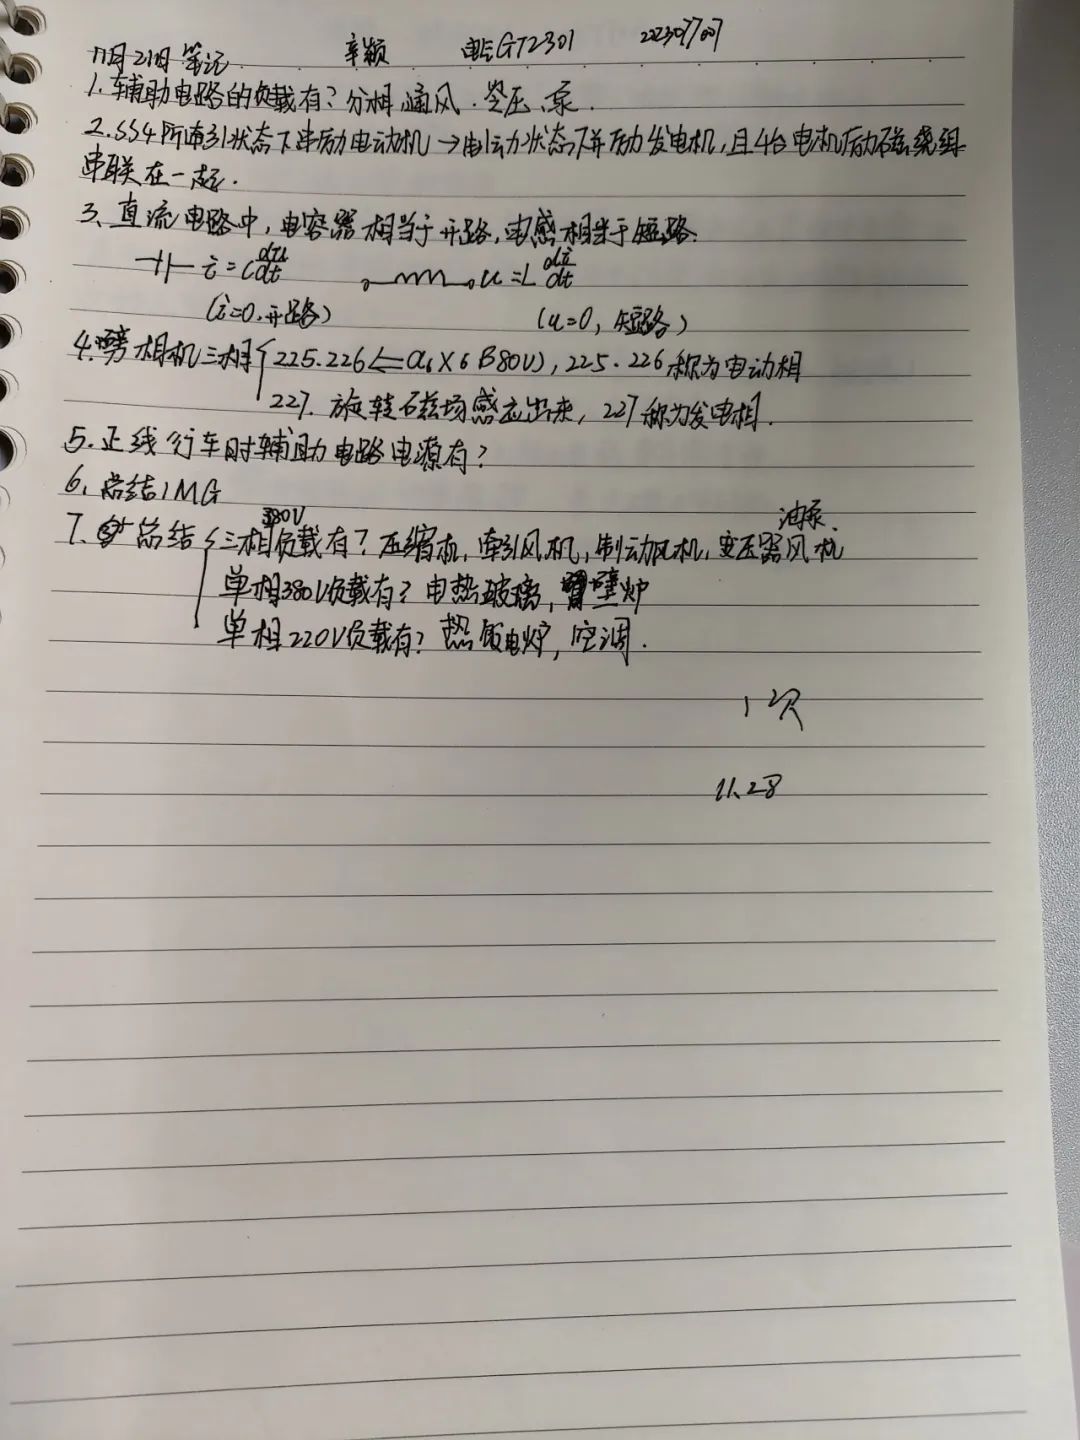 11月21日 笔记 辛颖 电气GT2301
1.辅助电路的负载有?分相,通风.空压、泵.
2.SS4所牵引状态下串励电动机→制动状态下并励发电机,且4台电机励磁绕组
串联在一起.
3、直流电路中,电容器相当于开路,电感相当于短路.
i=C du/dt u=L di/dt
(i=0,开路) (u=0,短路)
4.劈相机三相 225.226⇐a6 X6 380V),225.226称为电动相
227.旋转磁场感应出来,227称为发电相.
5.正线行车时辅助电路电源有?
6.总结1MG
7.总结 三相380V负载有?压缩机,牵引风机,制动风机,变压器风机 油泵.
单相380V负载有?电热玻璃,壁炉
单相220V负载有?热饭电炉,空调.
1次
11.28